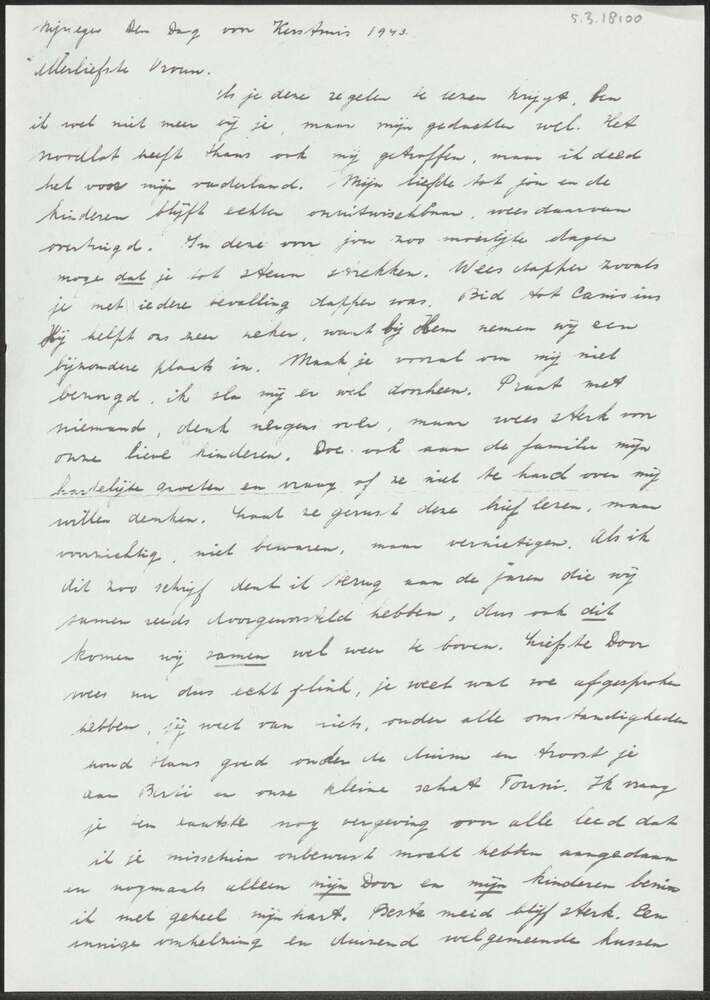 5.3.18100
Nijmegen Den Dag voor Kerstmis 1943
Allerliefste Vrouw.
Als je deze regelen te lezen krijgt, ben
ik wel niet meer bij je, maar mijn gedachten wel. Het
noodlot heeft thans ook mij getroffen, maar ik deed
het voor mijn vaderland. Mijn liefde tot jou en de
kinderen blijft echter onuitwischbaar, wees daarvan
overtuigd. In deze voor jou zoo moeilijke dagen
moge dat je tot steun strekken. Wees dapper zooals
je met iedere bevalling dapper was. Bid tot Canisius
Hij helpt ons zeer zeker, want bij Hem nemen wij een
bijzondere plaats in. Maak je vooral om mij niet
bezorgd, ik sla mij er wel doorheen. Praat met
niemand, denk nergens over, maar wees sterk voor
onze lieve kinderen. Doe ook aan de familie mijn
hartelijke groeten en vraag of ze niet te hard over mij
willen denken. Laat ze gerust deze brief lezen, maar
voorzichtig, niet bewaren, maar vernietigen. Als ik
dit zoo schrijf denk ik terug aan de jaren die wij
samen reeds doorgeworsteld hebben, dus ook dit
komen wij samen wel weer te boven. Liefste Door
wees nu dus echt flink, je weet wat we afgesproken
hebben, jij weet van niets, onder alle omstandigheden
houd Hans goed onder de duim en troost je
aan en onze kleine schat. Ik vraag
je ten laatste nog vergeving voor alle leed dat
ik je misschien onbewust mocht hebben aangedaan
en nogmaals alleen mijn Door en mijn kinderen bemin
ik met geheel mijn hart. Beste meid blijf sterk. Een
innige omhelzing en duizend welgemeende kussen